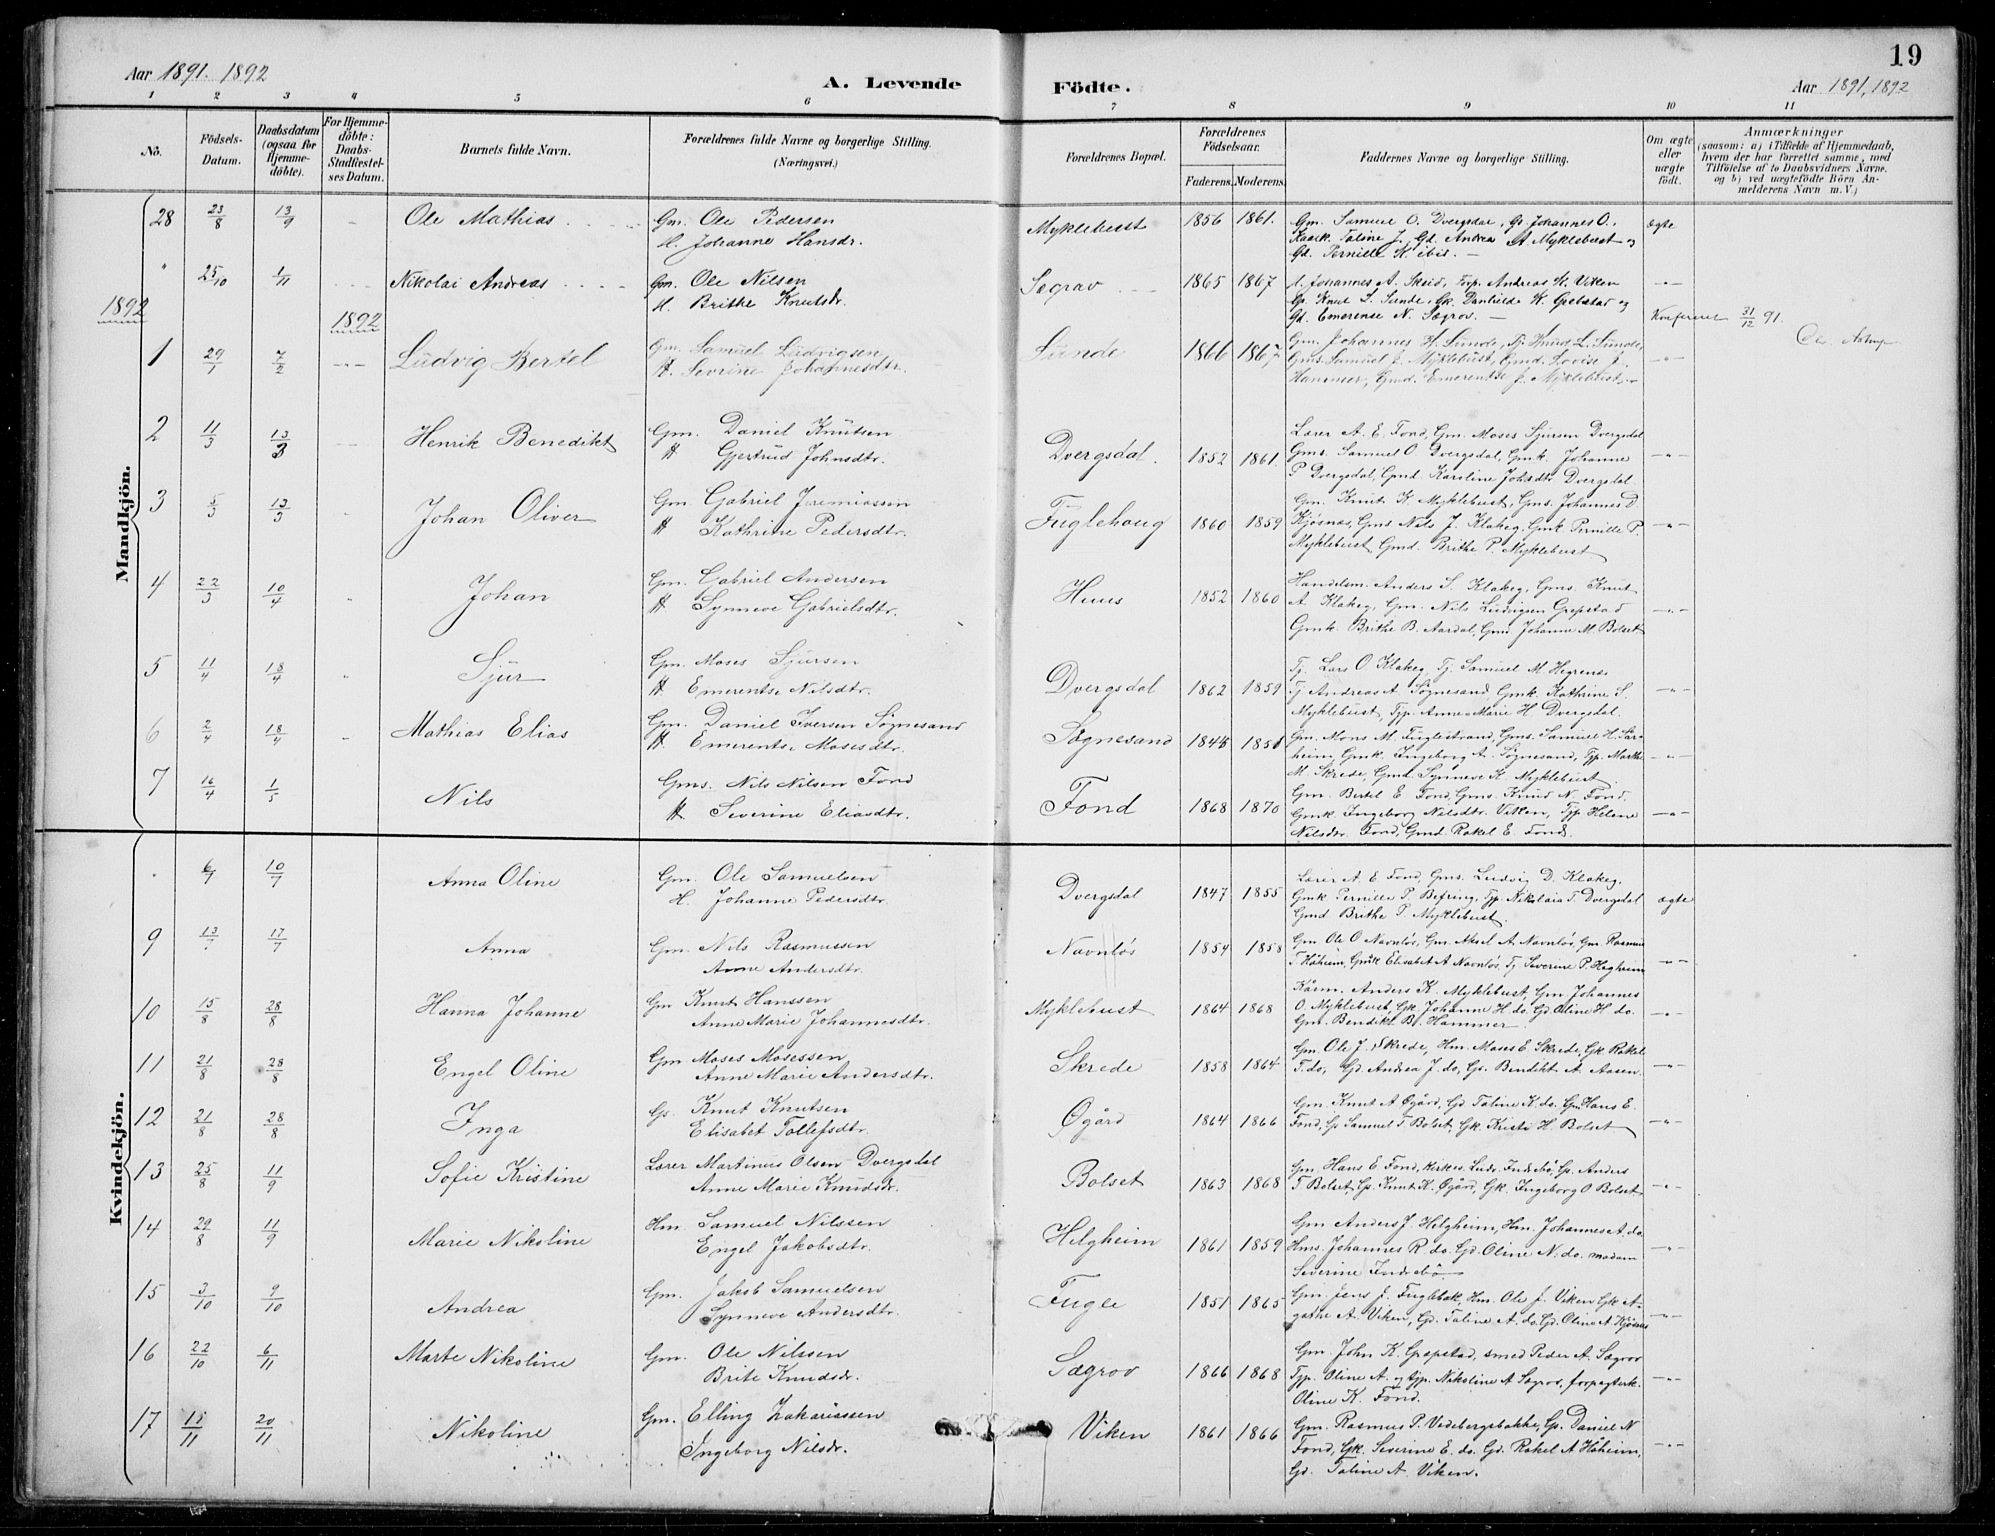 19
Aar 1891. 1892
A. Levende Födte.
Aar 1891, 1892
1 2 3 4 5 6 7 8 9 10 11
No.
Födsels-Datum.
Daabsdatum (ogsaa for Hjemmedöbte).
For Hjemmedöbte: Daabs-Stadfæstelses Datum.
Barnets fulde Navn.
Forældrenes fulde Navne og borgerlige Stilling. (Næringsvei.)
Forældrenes Bopæl.
Forældrenes Födselsaar.
Faderens. Moderens.
Faddernes Navne og borgerlige Stilling.
Om ægte eller uægte födt.
Anmærkninger
(saasom: a) i Tilfælde af Hjemmedaab, hvem der har forrettet samme, med Tilföielse af to Daabsvidners Navne. og b) ved uægtefödte Börn Anmelderens Navn m. V.)
Mandkjön.
28 23/8 13/9 Ole Mathias Gm. Ole Pedersen Myklebust 1856 1861. Gm. Samuel O. Dvergsdal, Gs. Johannes O. ægte
H. Johanne Hansdr. Taline J. Gd. Andrea A. Myklebust og
Gd. Pernille K. ibid.
" 25/10 1/11 Nikolai Andreas Gm. Ole Nilsen Sægrov 1865 1867 Johannes A. Skeid, Tjp. Andreas K. Viken
H. Brithe Knutsdr. Gs. Knut S. Sunde, Gk. Danhilde K. Grebstad og
Gd. Emerense N. Sægrov.
1892 1892 Konfereret 31/12 91.
1 29/1 7/2 Ludvig Bertel Gm. Samuel Ludvigsen Sunde 1866 1867 Gm. Johannes H. Sunde, Tj. Knud L. Sunde,
H. Sevrine Johannesdtr. Gms. Samuel J. Myklebust, Gmd. Lovise J.
Hammer, Gmd. Emerentse J. Myklebust.
2 11/3 13/3 Henrik Benedikt Gm. Daniel Knutsen Dvergsdal. 1852 1861. Lærer A. E. Fond, Gm. Moses Sjursen Dvergsdal
H. Gjertrud Johnsdtr. Gms. Samuel O Dvergsdal, Gmk. Johanne
P Dvergsdal, Gmd. Karoline Johsdtr Dvergsdal.
3 5/3 13/3 Johan Oliver Gm Gabriel Jeremiassen Fuglehaug 1860 1859 Gm. Knut K. Myklebust, Gms. Johannes D.
H Kathrine Pedersdtr. Kjøsnes, Gms Nils J. Klakeg, Gmk Pernille P.
Myklebust, Gmd. Brithe P. Myklebust
4 22/3 10/4 Johan Gm. Gabriel Andersen Huus 1852 1860 Handelsm. Anders S. Klakeg, Gms. Knut
H Synneve Gabrielsdtr. A Klakeg, Gm. Nils Ludvigsen Grepstad
Gmk. Brithe B. Aardal, Gmd Johanne M. Bolset
5 11/4 18/4 Sjur Gm. Moses Sjursen Dvergsdal 1862 1859 Tj. Lars O Klakeg, Tj. Samuel M. Hegrenes
H Emerentse Nilsdtr. Tj Andreas A Søgnesand, Gmk. Kathrine S.
Myklebust, Tjp. Anne Marie H Dvergsdal.
6 2/4 18/4 Mathias Elias Gm. Daniel Iversen Søgnesand Søgnesand 1845 1850 Gm. Mons M. Fuglestrand, Gms. Samuel H. Sår-
H Emerentse Mosesdtr. heim, Gmk. Ingeborg A. Søgnesand, Tjp. Marthe
M. Skrede, Gmd. Synneve K. Myklebust.
7 16/4 1/5 Nils Gms. Nils Nilsen Fond Fond 1868 1870 Gm. Bertel E. Fond, Gms. Knud N. Fond.
H. Severine Eliasdtr. Gmk Ingeborg Nilsdtr. Viken, Tjp. Helene
Nilsdtr. Fond, Gmd. Rakel E. Fond.
Kvindekjön.
6/7 10/7 Anna Oline Gm. Ole Samuelsen Dvergsdal 1847 1855 Lærer A. E. Fond, Gms. Ludvig D. Klakeg.
H. Johanne Pedersdtr. Gmk Pernille P. Befring, Tjp. Nikolaia T. Dvergsdal ægte
Gmd Brithe P. Myklebust.
9 13/7 17/7 Anna Gm. Nils Rasmussen Navnløs 1854 1858 Gm Ole O Navnløs, Gm. Aksel A Navnløs, Gm. Rasmus
Anne Andersdtr. T Håheim, Gmk Elisabet A Navnløs, Tj Severine P. Hegheim
10 15/8 28/8 Hanna Johanne Gm Knut Hanssen Myklebust 1864 1868 Kårm. Anders K. Myklebust, Gm Johannes
Anne Marie Johannesdtr. O. Myklebust, Gk Johanne H do. Gd Oline H do.
Gm. Bendikt B. Hammer
11 21/8 28/8 Engel Oline Gm Moses Mosessen Skrede 1858 1864 Gm. Ole J. Skrede, Hm. Moses E. Skrede, Gk Rakel
Anne Marie Andersdtr. T. do, Gd Andrea J. do, Gs. Bendikt A. Aasen.
12 21/8 28/8 Inga Gs. Knut Knutsen Øgård 1864 1866 Gm. Knut A Øgård, Gd Taline K. do. Gm Hans E.
Elisabet Tollefsdtr. Fond, Gs Samuel T Bolset, Gk. Kristi H. Bolset
13 25/8 11/9 Sofie Kristine Lærer Martinus Olsen Dvergsdal Bolset 1863 1868 Gm. Hans E Fond, kirkes. Ludv. Indrebø, Gs. Anders
Anne Marie Knudsdr. T Bolset, Gs. Knut K. Øgård, Gk. Ingeborg O Bolset.
14 29/8 11/9 Marie Nikoline Hm. Samuel Nilssen Helgheim 1861 1859 Gm Anders J Helgheim, Hm. Johannes A. do.
Engel Jakobsdtr. Hms. Johannes R. do. Gd. Oline N. do. madam
Severine Indrebø
15 3/10 9/10 Andrea Gm. Jakob Samuelsen Fugle 1851 1865 Gm. Jens J. Fuglebak, Hm. Ole J. Viken Gk A-
Synneve Andersdtr. gathe A. Viken, Gd. Taline A. do. Gd. Oline A Kjøsnes
16 22/10 6/11 Marte Nikoline Gm. Ole Nilssen Sægrov 1866 1868 Gm. John K. Grepstad, smed Peder A. Sægrov
Brite Knudsdr. Tjp. Oline A. og tjp. Nikoline A Sægrov, forpagterk.
Oline K. Fond.
17 11/11 20/11 Nikoline Gm. Elling Zakariassen Viken 1861 1866 Gm. Rasmus P. Vedebergsbakke, Gs. Daniel N
Ingeborg Nilsdr. Fond, Gk. Severine E. do. Gd. Rakel A Håheim,
Gd. Taline A. Viken.